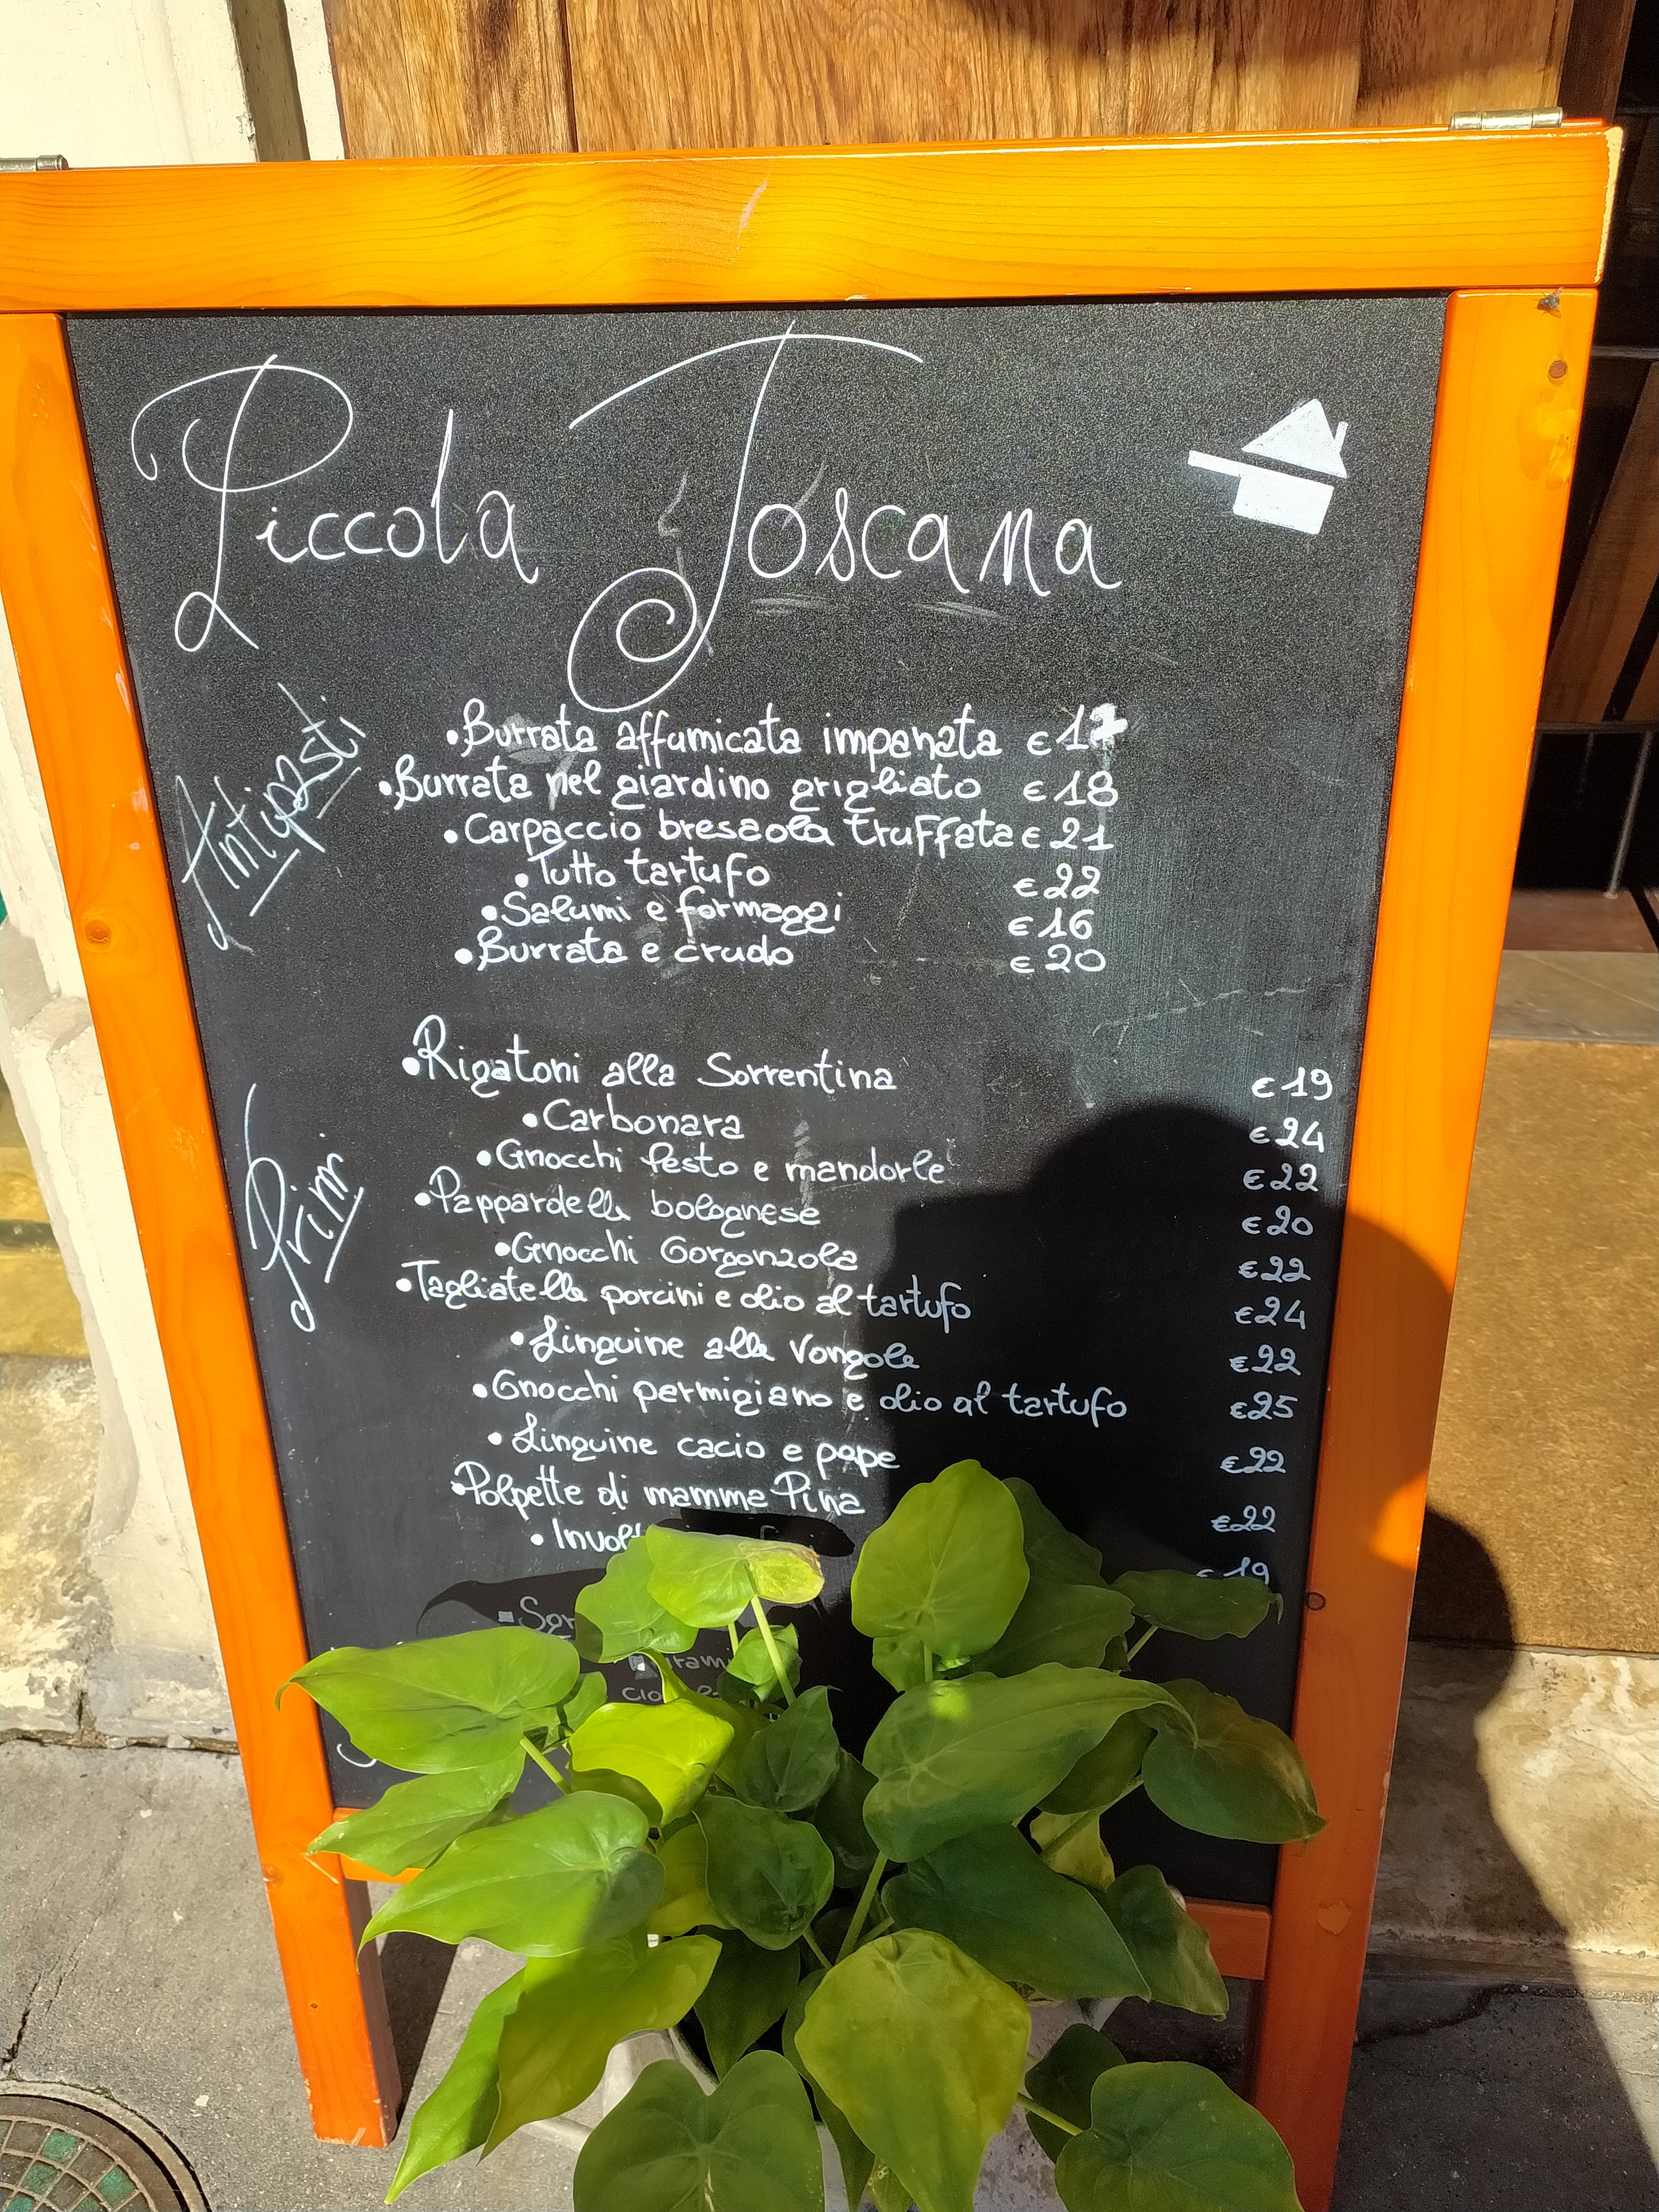 Piccola Toscana
Antipasti
• Burrata affumicata impanata € 17
• Burrata nel giardino grigliato € 18
• Carpaccio bresaola truffata € 21
• Tutto tartufo € 22
• Salumi e formaggi € 16
• Burrata e crudo € 20
Primi
• Rigatoni alla Sorrentina € 19
• Carbonara € 24
• Gnocchi Pesto e mandorle € 22
• Pappardelle bolognese € 20
• Gnocchi Gorgonzola € 22
• Tagliatelle porcini e olio al tartufo € 24
• Linguine alle Vongole € 22
• Gnocchi permigiano e olio al tartufo € 25
• Linguine cacio e pepe € 22
• Polpette di mamma Pina € 22
• € 19